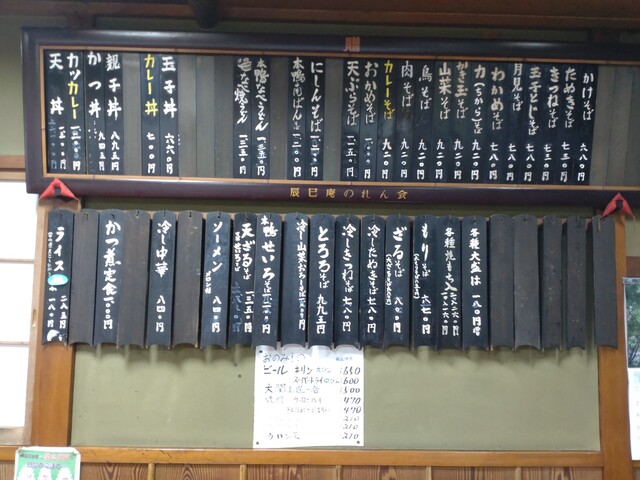 贈
かけそば 六八〇円
たぬきそば 七三〇円
きつねそば 七三〇円
玉子とじそば 七八〇円
月見そば 七八〇円
わかめそば 七八〇円
力(ちから)そば 九二〇円
かき玉そば 九二〇円
山菜そば 九二〇円
鳥そば 九二〇円
肉そば 九二〇円
カレーそば 九二〇円
おかめそば
天ぷらそば
にしんそば 一二〇〇円
本鴨南ばんそば 一二〇〇円
本鴨なべうどん 一三五〇円
なべ焼うどん 一三五〇円
玉子丼 六六〇円
カレー丼 七〇〇円
親子丼 八九三円
かつ丼 九四五円
カツカレー
天丼
辰巳庵のれん会
各種大盛は 一八〇円
各種焼もち入
もりそば 六七〇円
ざるそば
冷したぬきそば 七八〇円
冷しきつねそば 七八〇円
とろろそば 九九五円
冷し山菜おろしそば
本鴨せいろそば
天ざるそば 一三五〇円
ソーメン 八四〇円
冷し中華 八四〇円
かつ煮定食 一〇〇〇円
ライス 二八五円
小 一八〇円
おのみもの
ビール キリン 650
スーパードライ 600
470
470
210
210
ウーロン茶 210